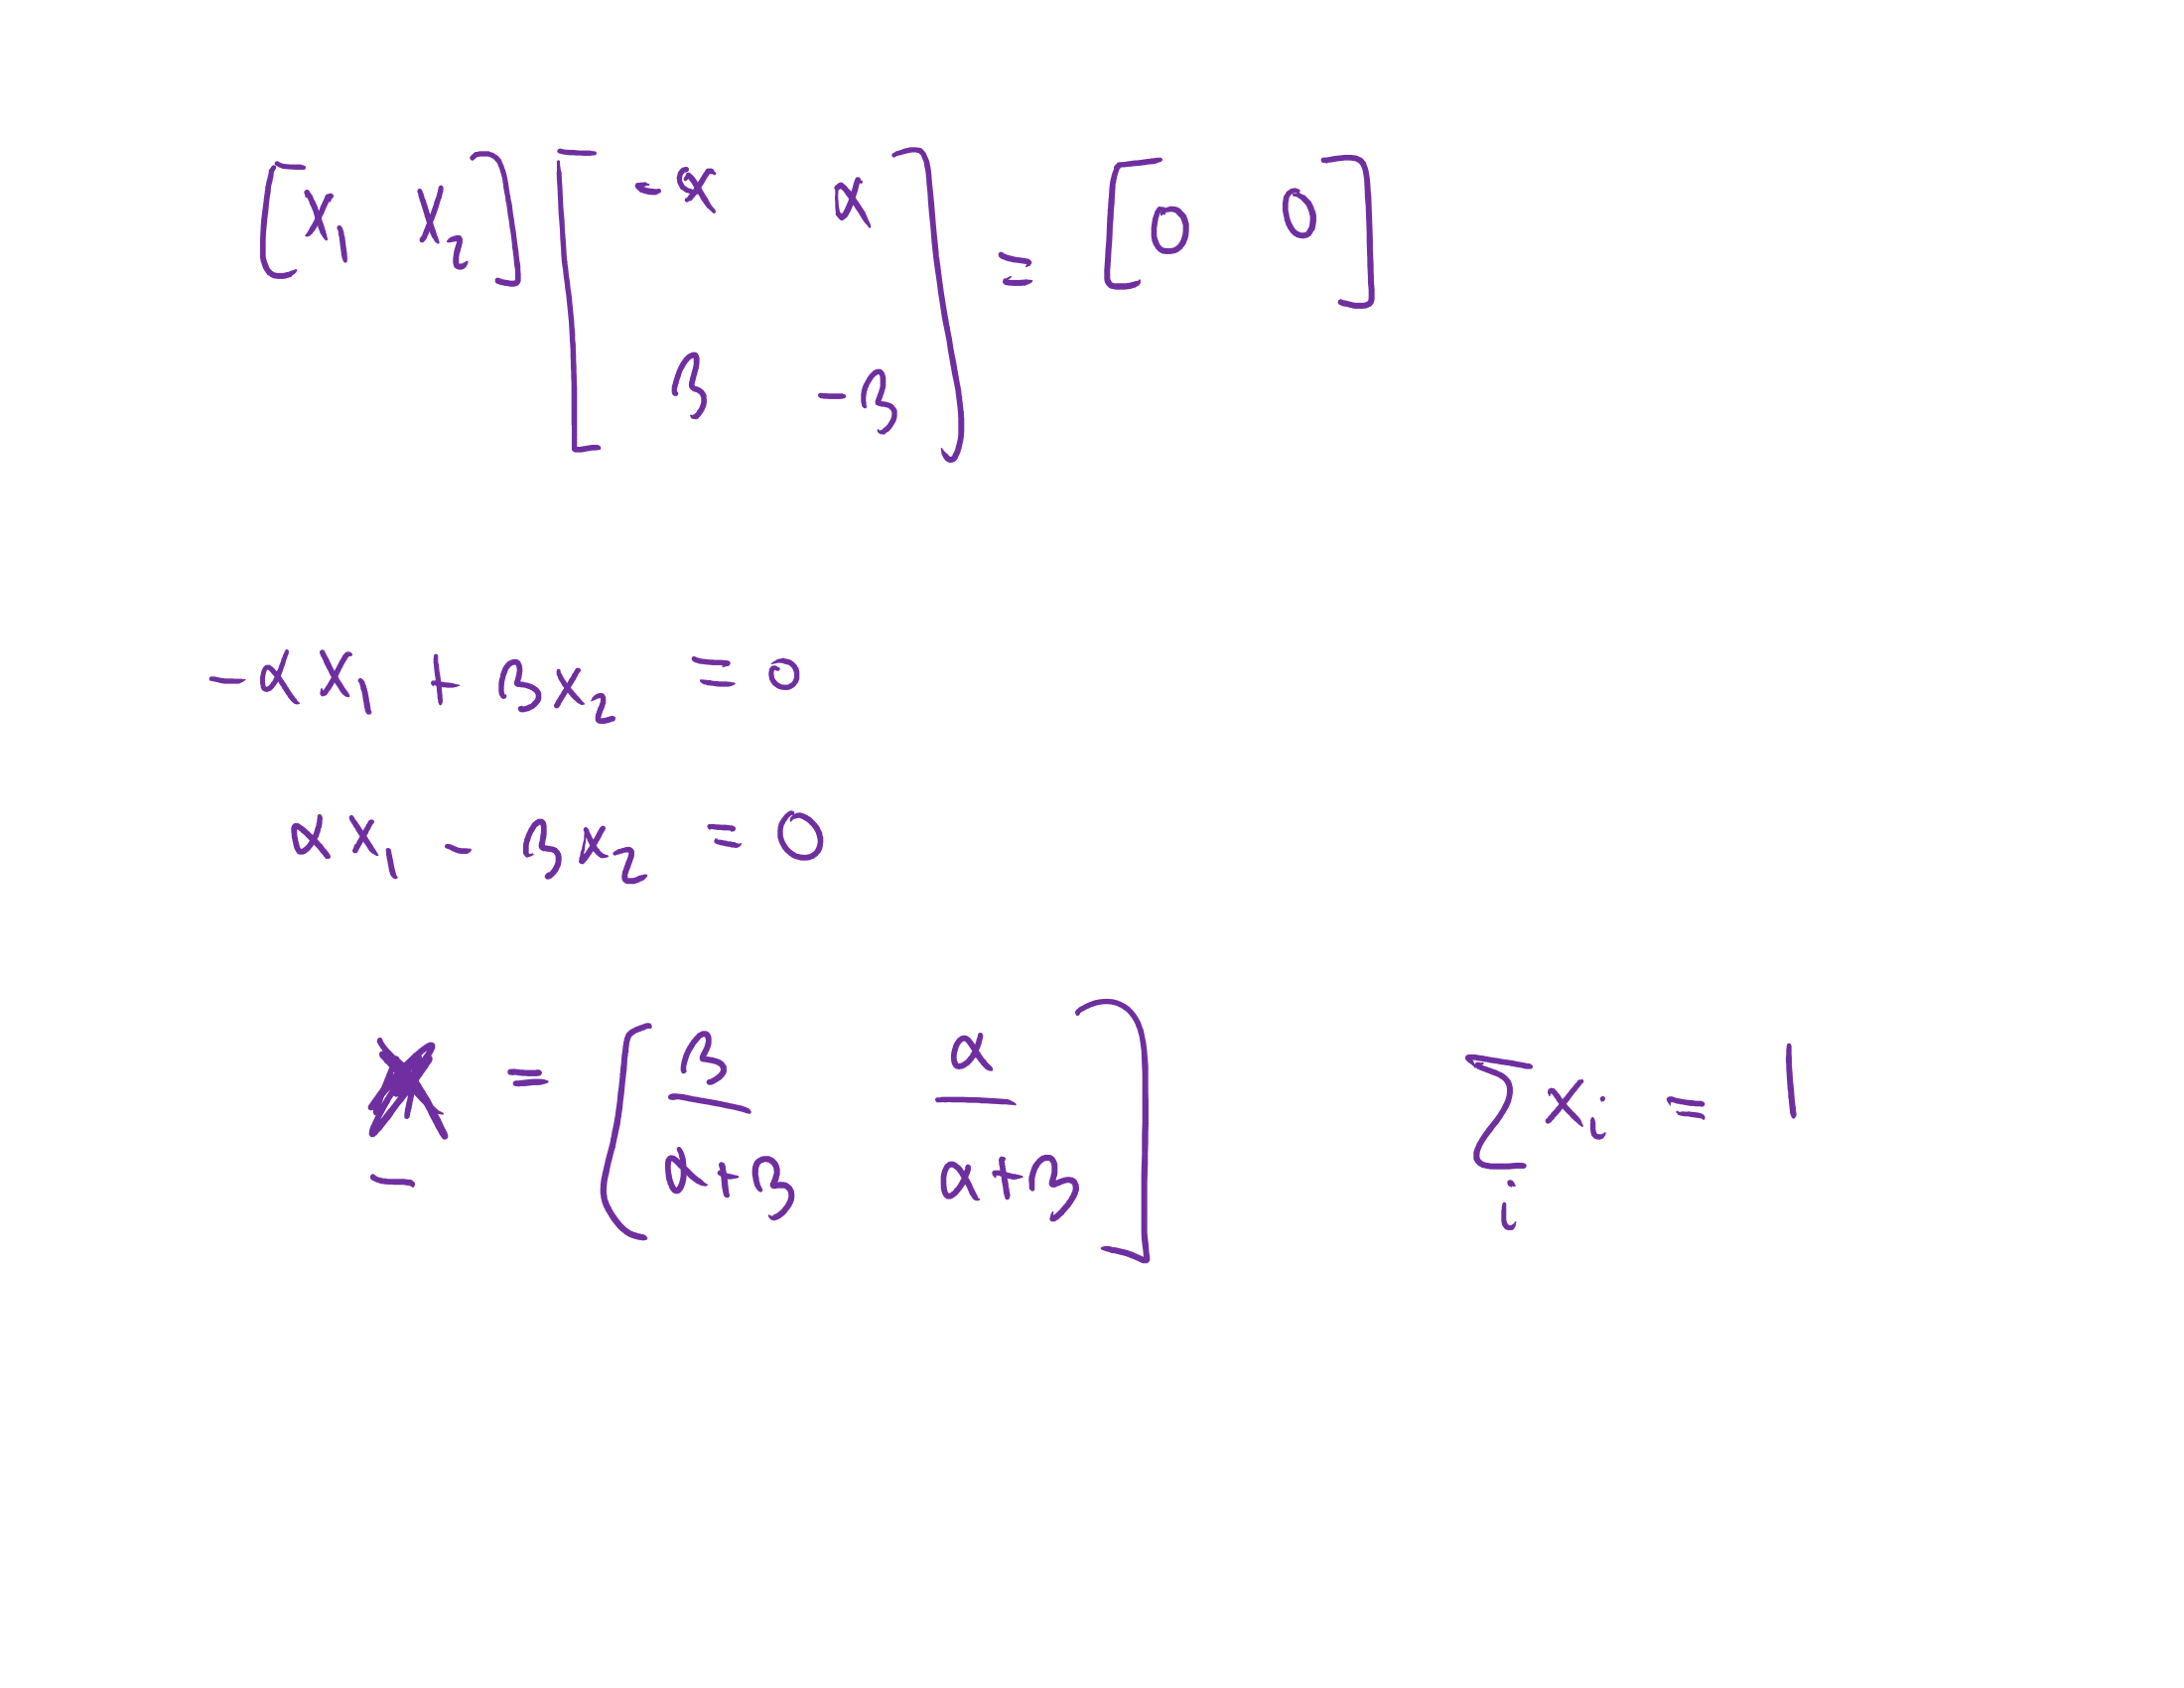 [x₁ x₂] [-α α; β -β] = [0 0]
-αx₁ + βx₂ = 0
αx₁ - βx₂ = 0
x = [β/(α+β) α/(α+β)] ∑ᵢ xᵢ = 1